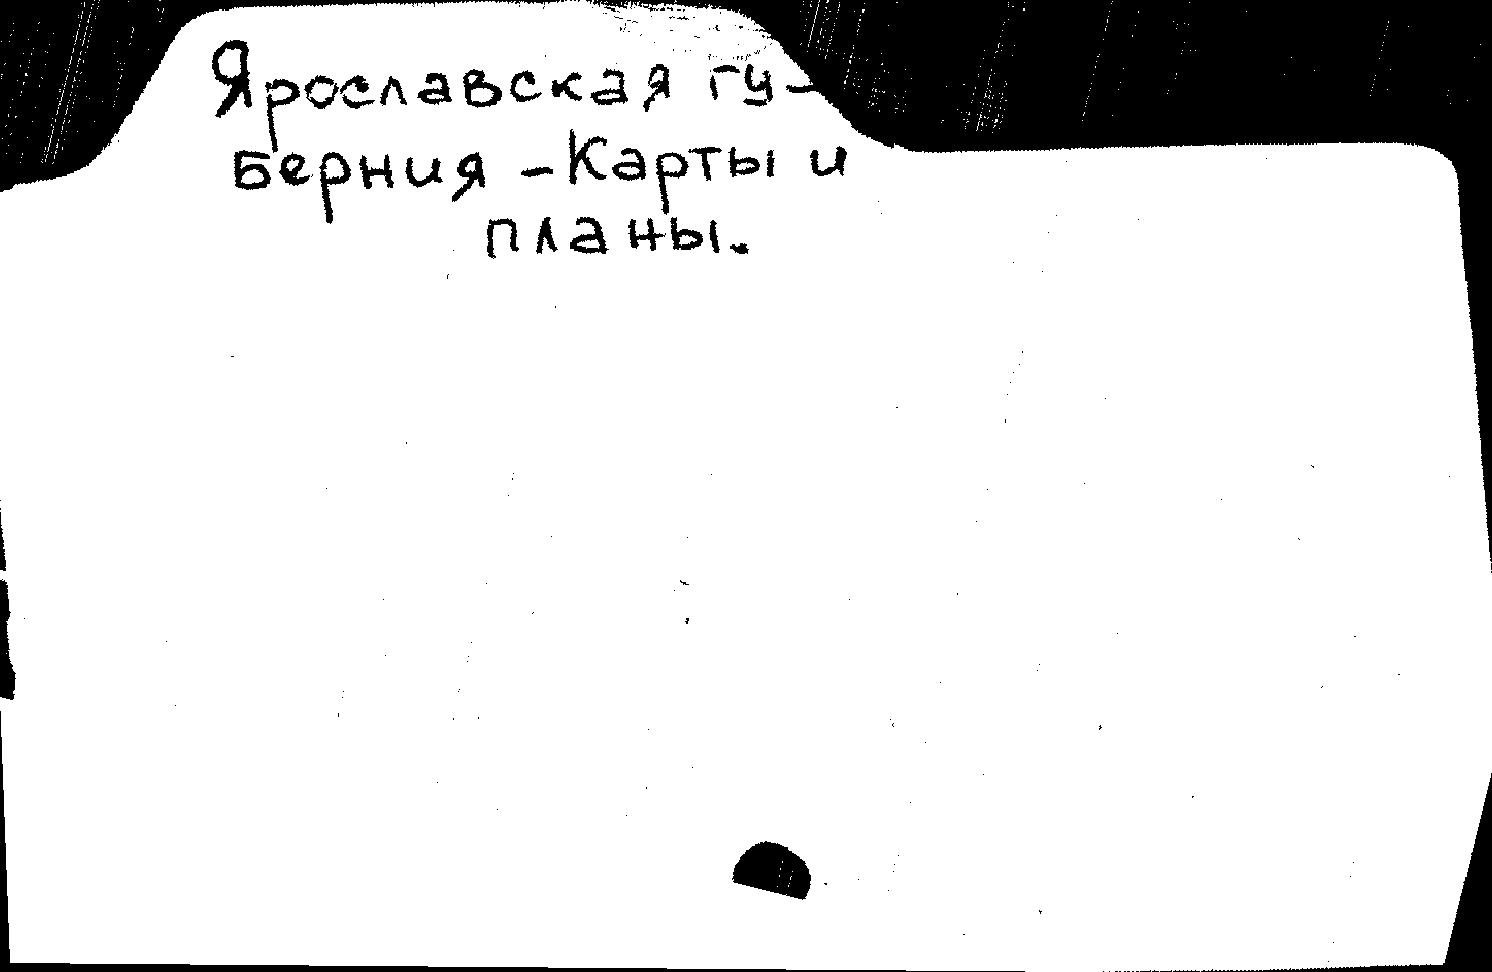 Ярославская гу-
берния - Карты и
планы.